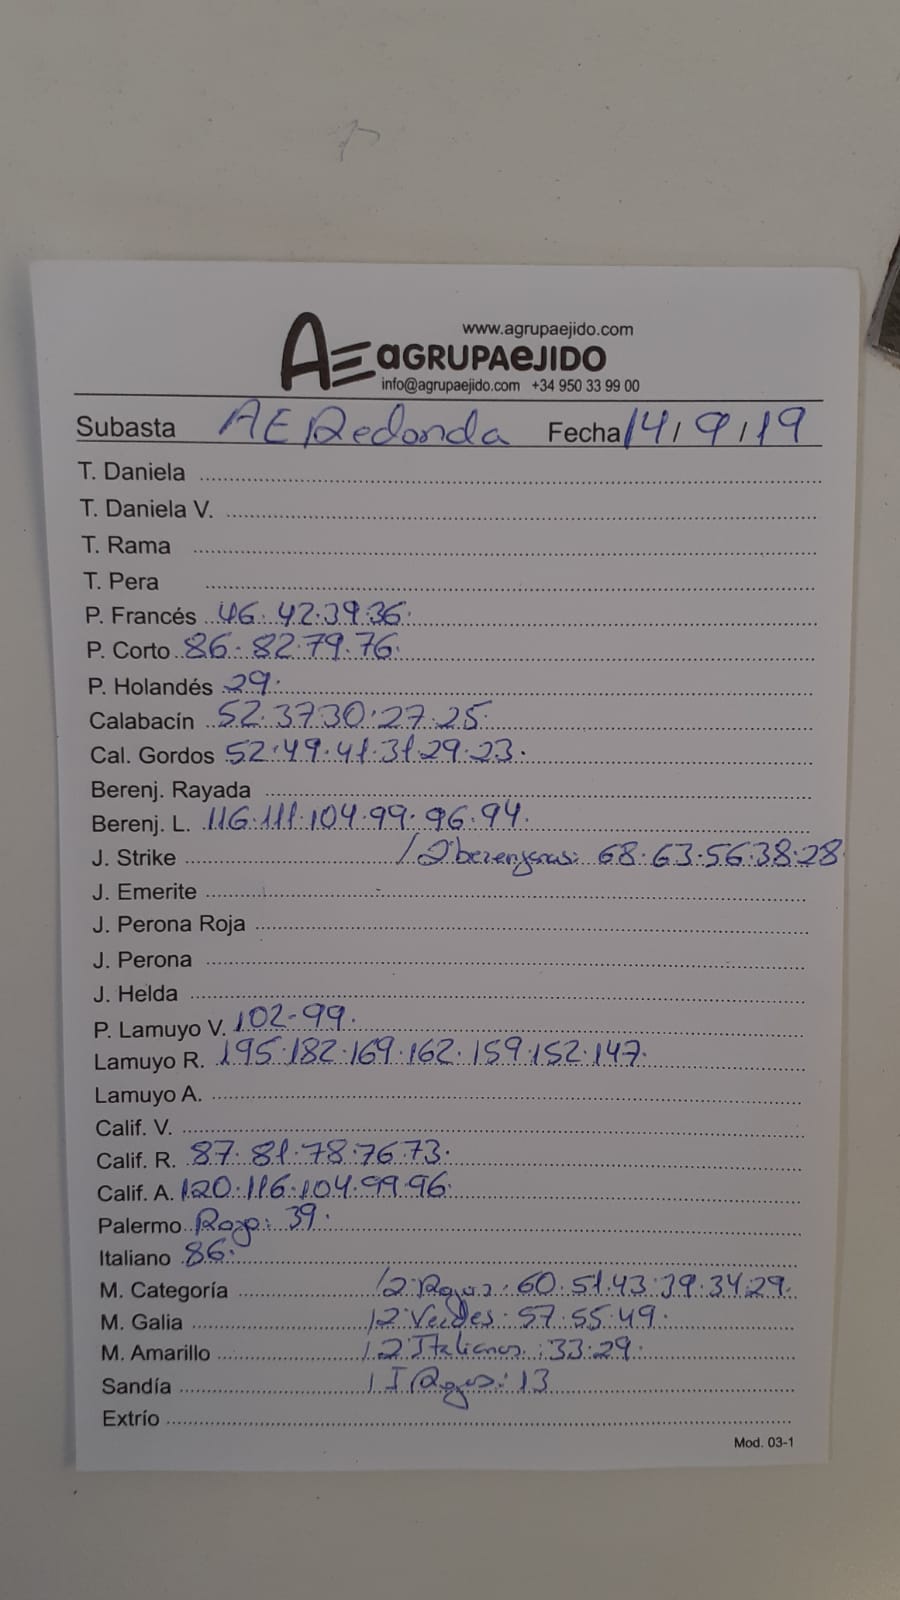 www.agrupaejido.com
AE aGRUPAeJIDO
info@agrupaejido.com +34 950 33 99 00
Subasta AE Redonda Fecha 14/9/19
T. Daniela
T. Daniela V.
T. Rama
T. Pera
P. Francés 46.42.39.36.
P. Corto 86.82.79.76.
P. Holandés 29.
Calabacín 52.37.30.27.25.
Cal. Gordos 52.49.41.31.29.23.
Berenj. Rayada
Berenj. L. 116.111.104.99.96.94.
J. Strike /2ªberenjenas: 68.63.56.38.28
J. Emerite
J. Perona Roja
J. Perona
J. Helda
P. Lamuyo V. 102-99.
Lamuyo R. 195.182.169.162.159.152.147.
Lamuyo A.
Calif. V.
Calif. R. 87.81.78.76.73.
Calif. A. 120.116.104.99.96.
Palermo Rojo: 39.
Italiano 86.
M. Categoría /2ªRojos: 60.51.43.39.34.29.
M. Galia /2ªVerdes: 57.55.49.
M. Amarillo /2ªItalianos: 33.29.
Sandía / I Rojos: 13
Extrío
Mod. 03-1